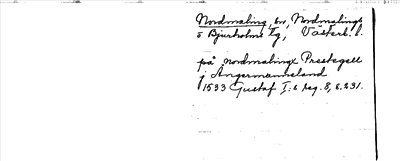 Nordmaling, sn, Nordmalings
o Bjurholms tg, Västerb. l.
på nordmalingx Prestegell
j Ångermanneland
1533 Gustaf I:s reg. 8, s. 231.